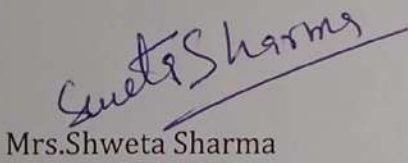 Sweta Sharma
Mrs.Shweta Sharma